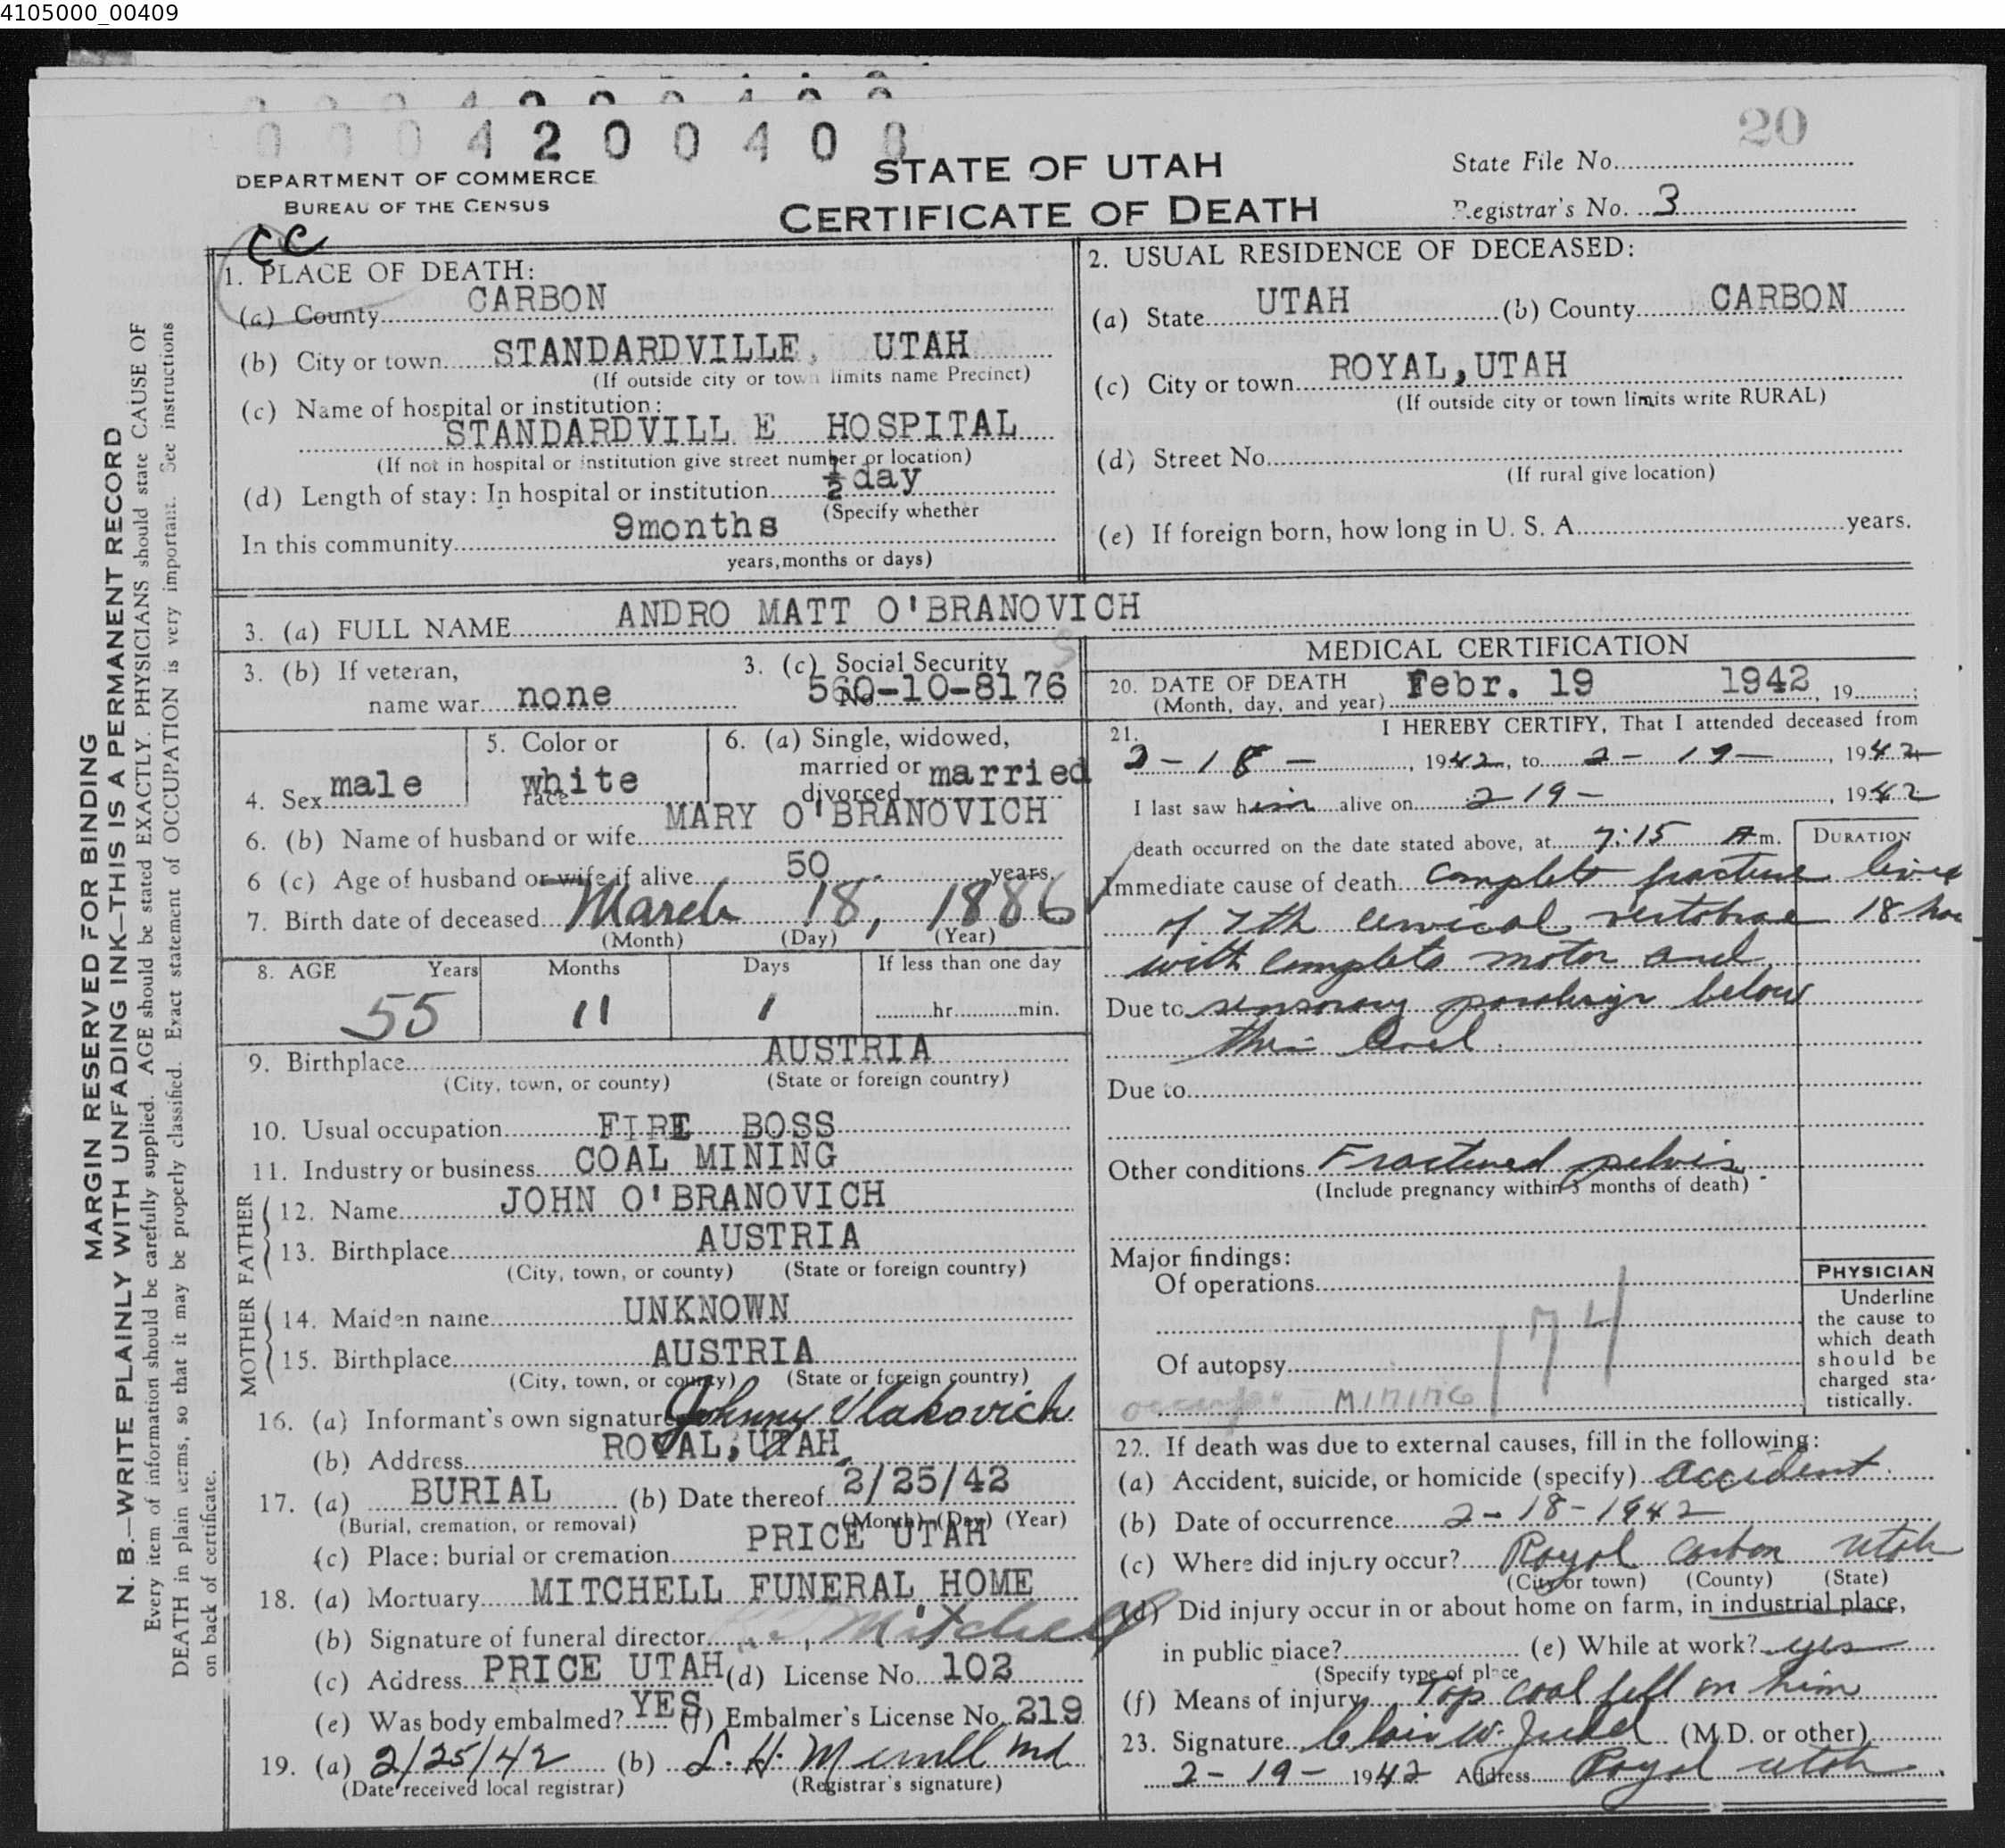 4105000_00409
0004200400
20
DEPARTMENT OF COMMERCE
BUREAU OF THE CENSUS
STATE OF UTAH
CERTIFICATE OF DEATH
State File No.
Registrar's No. 3
CC
MARGIN RESERVED FOR BINDING
N. B.—WRITE PLAINLY WITH UNFADING INK—THIS IS A PERMANENT RECORD
Every item of information should be carefully supplied. AGE should be stated EXACTLY. PHYSICIANS should state CAUSE OF
DEATH in plain terms, so that it may be properly classified. Exact statement of OCCUPATION is very important. See instructions
on back of certificate.
1. PLACE OF DEATH:
(a) County CARBON
(b) City or town STANDARDVILLE, UTAH
(If outside city or town limits name Precinct)
(c) Name of hospital or institution:
STANDARDVILL E HOSPITAL
(If not in hospital or institution give street number or location)
(d) Length of stay: In hospital or institution ½ day
(Specify whether
In this community 9months
years, months or days)
2. USUAL RESIDENCE OF DECEASED:
(a) State UTAH (b) County CARBON
(c) City or town ROYAL, UTAH
(If outside city or town limits write RURAL)
(d) Street No.
(If rural give location)
(e) If foreign born, how long in U. S. A. years.
3. (a) FULL NAME ANDRO MATT O'BRANOVICH
3. (b) If veteran,
name war none
3. (c) Social Security
No. 560-10-8176
4. Sex male
5. Color or
race white
6. (a) Single, widowed,
married or
divorced married
6. (b) Name of husband or wife MARY O'BRANOVICH
6 (c) Age of husband or wife if alive 50 years.
7. Birth date of deceased March 18, 1886
(Month) (Day) (Year)
8. AGE Years Months Days If less than one day
55 11 1 hr. min.
9. Birthplace AUSTRIA
(City, town, or county) (State or foreign country)
10. Usual occupation FIRE BOSS
11. Industry or business COAL MINING
FATHER
12. Name JOHN O'BRANOVICH
13. Birthplace AUSTRIA
(City, town, or county) (State or foreign country)
MOTHER
14. Maiden name UNKNOWN
15. Birthplace AUSTRIA
(City, town, or county) (State or foreign country)
16. (a) Informant's own signature Johnny Vlakovich
(b) Address ROYAL, UTAH
17. (a) BURIAL (b) Date thereof 2/25/42
(Burial, cremation, or removal) (Month) (Day) (Year)
(c) Place: burial or cremation PRICE UTAH
18. (a) Mortuary MITCHELL FUNERAL HOME
(b) Signature of funeral director Mitchell
(c) Address PRICE UTAH (d) License No. 102
(e) Was body embalmed? YES (f) Embalmer's License No. 219
19. (a) 2/25/42 (b) L. H. Merrill md
(Date received local registrar) (Registrar's signature)
MEDICAL CERTIFICATION
20. DATE OF DEATH Febr. 19 1942, 19 ;
(Month, day, and year)
21. I HEREBY CERTIFY, That I attended deceased from
2-18-, 1942, to 2-19-, 1942
I last saw him alive on 2 19-, 1942
death occurred on the date stated above, at 7:15 A m.
DURATION
Immediate cause of death complete fracture lived
of 7th cervical vertebrae 18 hrs
with complete motor and
Due to sensorary paralysis below
this level.
Due to
Other conditions Fractured pelvis.
(Include pregnancy within 3 months of death)
Major findings:
Of operations
174
Of autopsy
MINING
PHYSICIAN
Underline
the cause to
which death
should be
charged sta-
tistically.
22. If death was due to external causes, fill in the following:
(a) Accident, suicide, or homicide (specify) accident.
(b) Date of occurrence 2-18-1942
(c) Where did injury occur? Royal Carbon Utah
(City or town) (County) (State)
(d) Did injury occur in or about home on farm, in industrial place,
in public place? (e) While at work? yes
(Specify type of place
(f) Means of injury Top coal fell on him
23. Signature Clair W. Judd (M.D. or other)
2-19-1942 Address Royal Utah